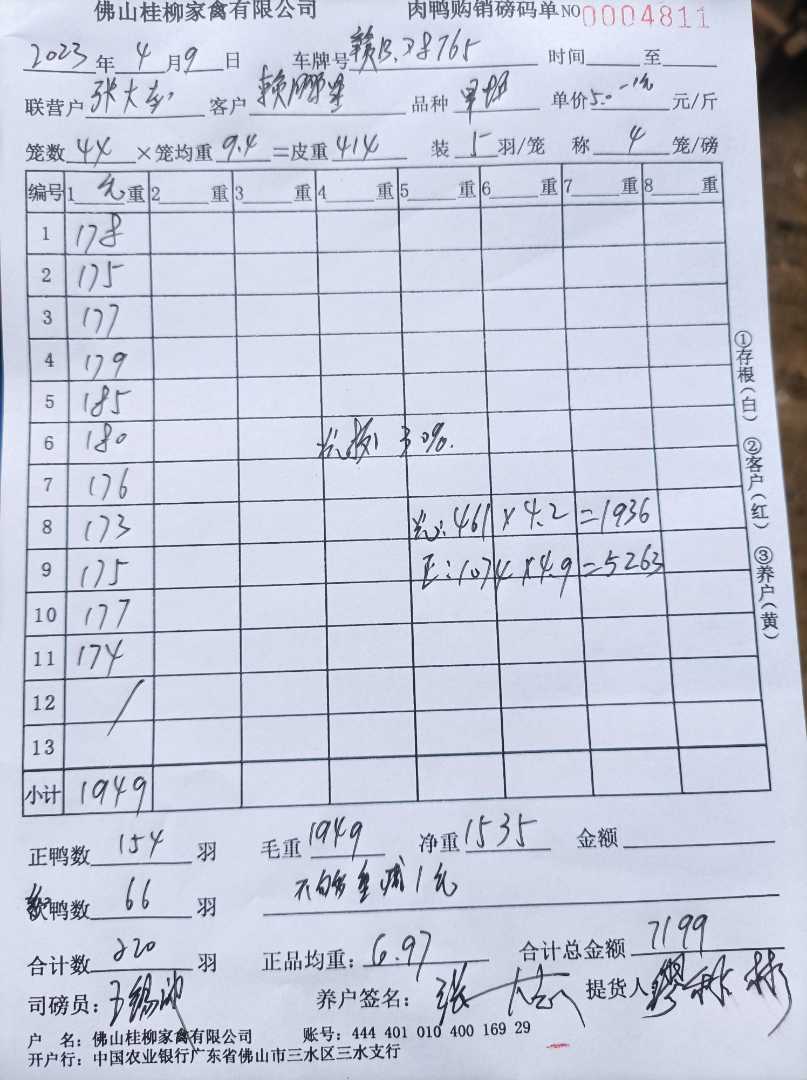 佛山桂柳家禽有限公司 肉鸭购销磅码单 NO 0004811
2023年 4月 9日 车牌号 赣B. 38765 时间 至
联营户 张大 客户 赖 品种 单价 5.0 -1元 元/斤
笼数 44 ×笼均重 9.4 =皮重 414 装 5 羽/笼 称 4 笼/磅
编号 1 重 2 重 3 重 4 重 5 重 6 重 7 重 8 重
1 178
2 175
3 177
4 179
5 185
6 180 30%.
7 176
8 173 : 461 × 4.2 = 1936
9 175 正: 1074 × 4.9 = 5263
10 177
11 174
12 /
13
小计 1949
①存根(白) ②客户(红) ③养户(黄)
正鸭数 154 羽 毛重 1949 净重 1535 金额
鸭数 66 羽 不 重 减 1元
合计数 220 羽 正品均重: 6.97 合计总金额 7199
司磅员: 王锡 养户签名: 张大 提货人 缪林彬
户 名: 佛山桂柳家禽有限公司 账号: 444 401 010 400 169 29
开户行: 中国农业银行广东省佛山市三水区三水支行